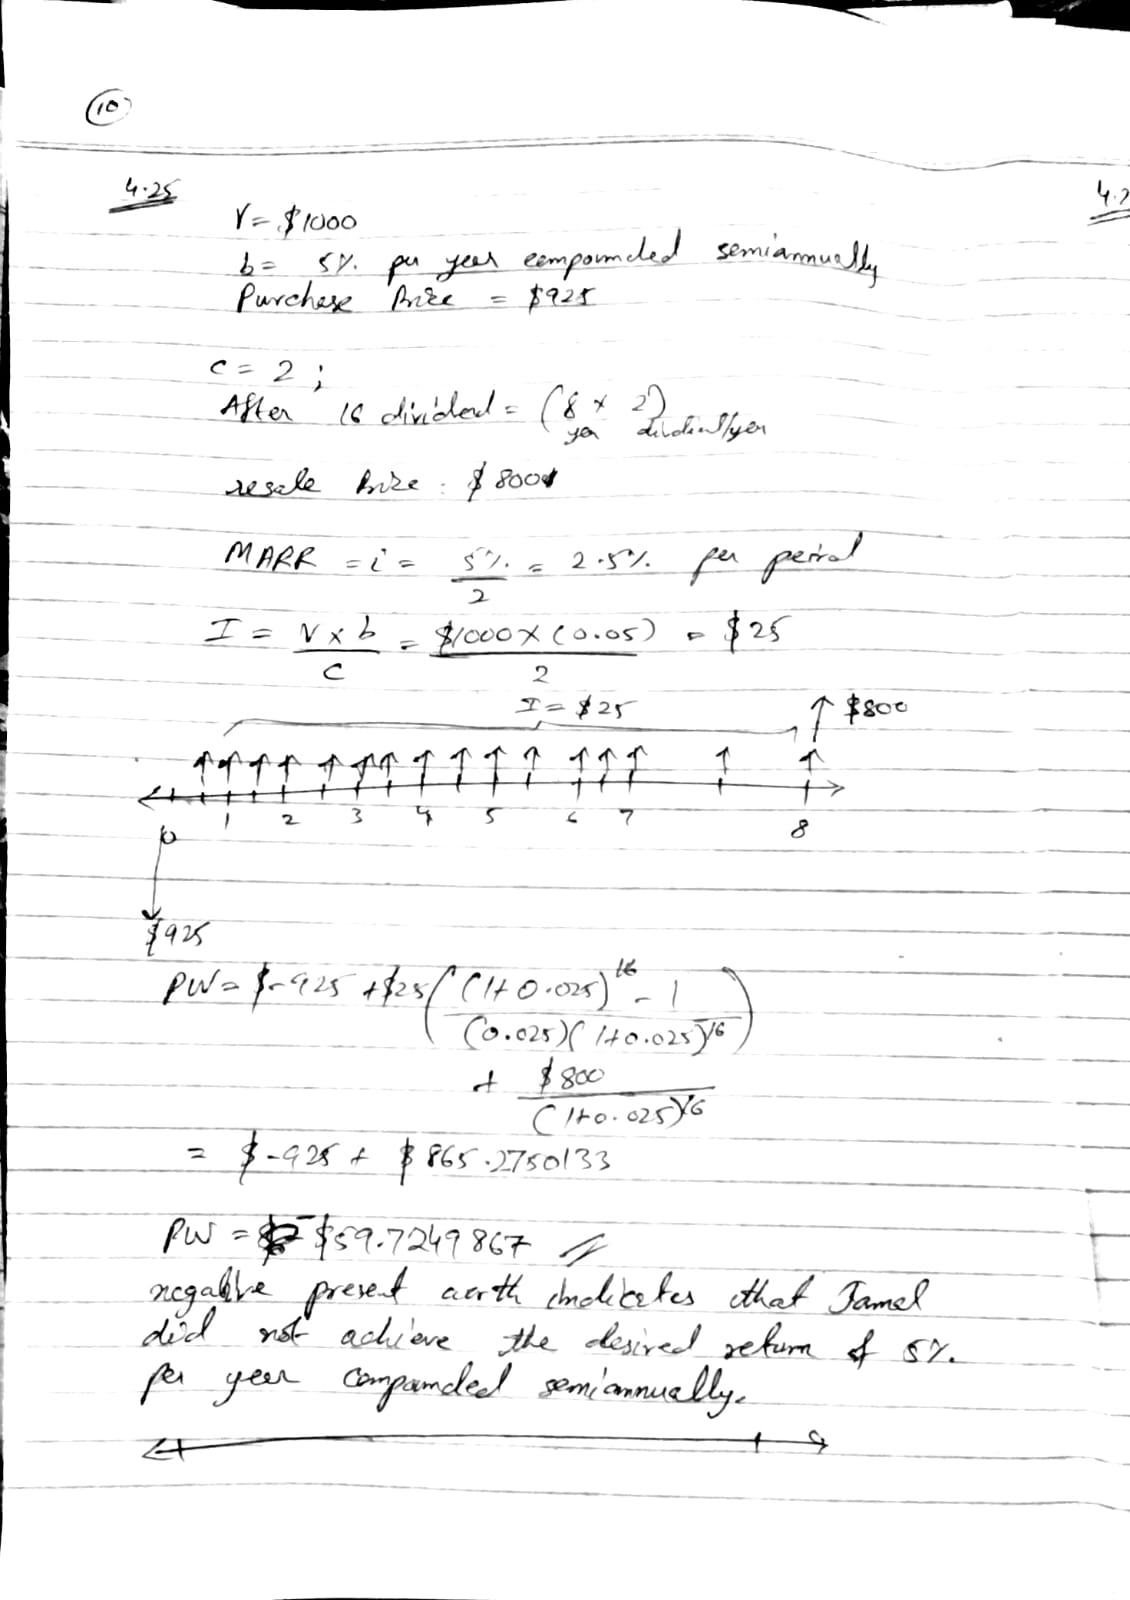 10
4.25
4.2
V = $1000
b = 5% per year compounded semiannually
Purchase Price = $925
c = 2 ;
After 16 dividend = (8 x 2)
year dividend/year
resale Price : $800
MARR = i = 5%/2 = 2.5% per period
I = V x b / C = $1000 x (0.05) / 2 = $25
I = $25
$800
0 1 2 3 4 5 6 7 8
$925
PW = $-925 + $25 ( (1+0.025)^16 - 1 / (0.025)(1+0.025)^16 )
+ $800 / (1+0.025)^16
= $-925 + $865.2750133
PW = -$59.7249867
negative present worth indicates that Jamel
did not achieve the desired return of 5%
per year compounded semiannually.